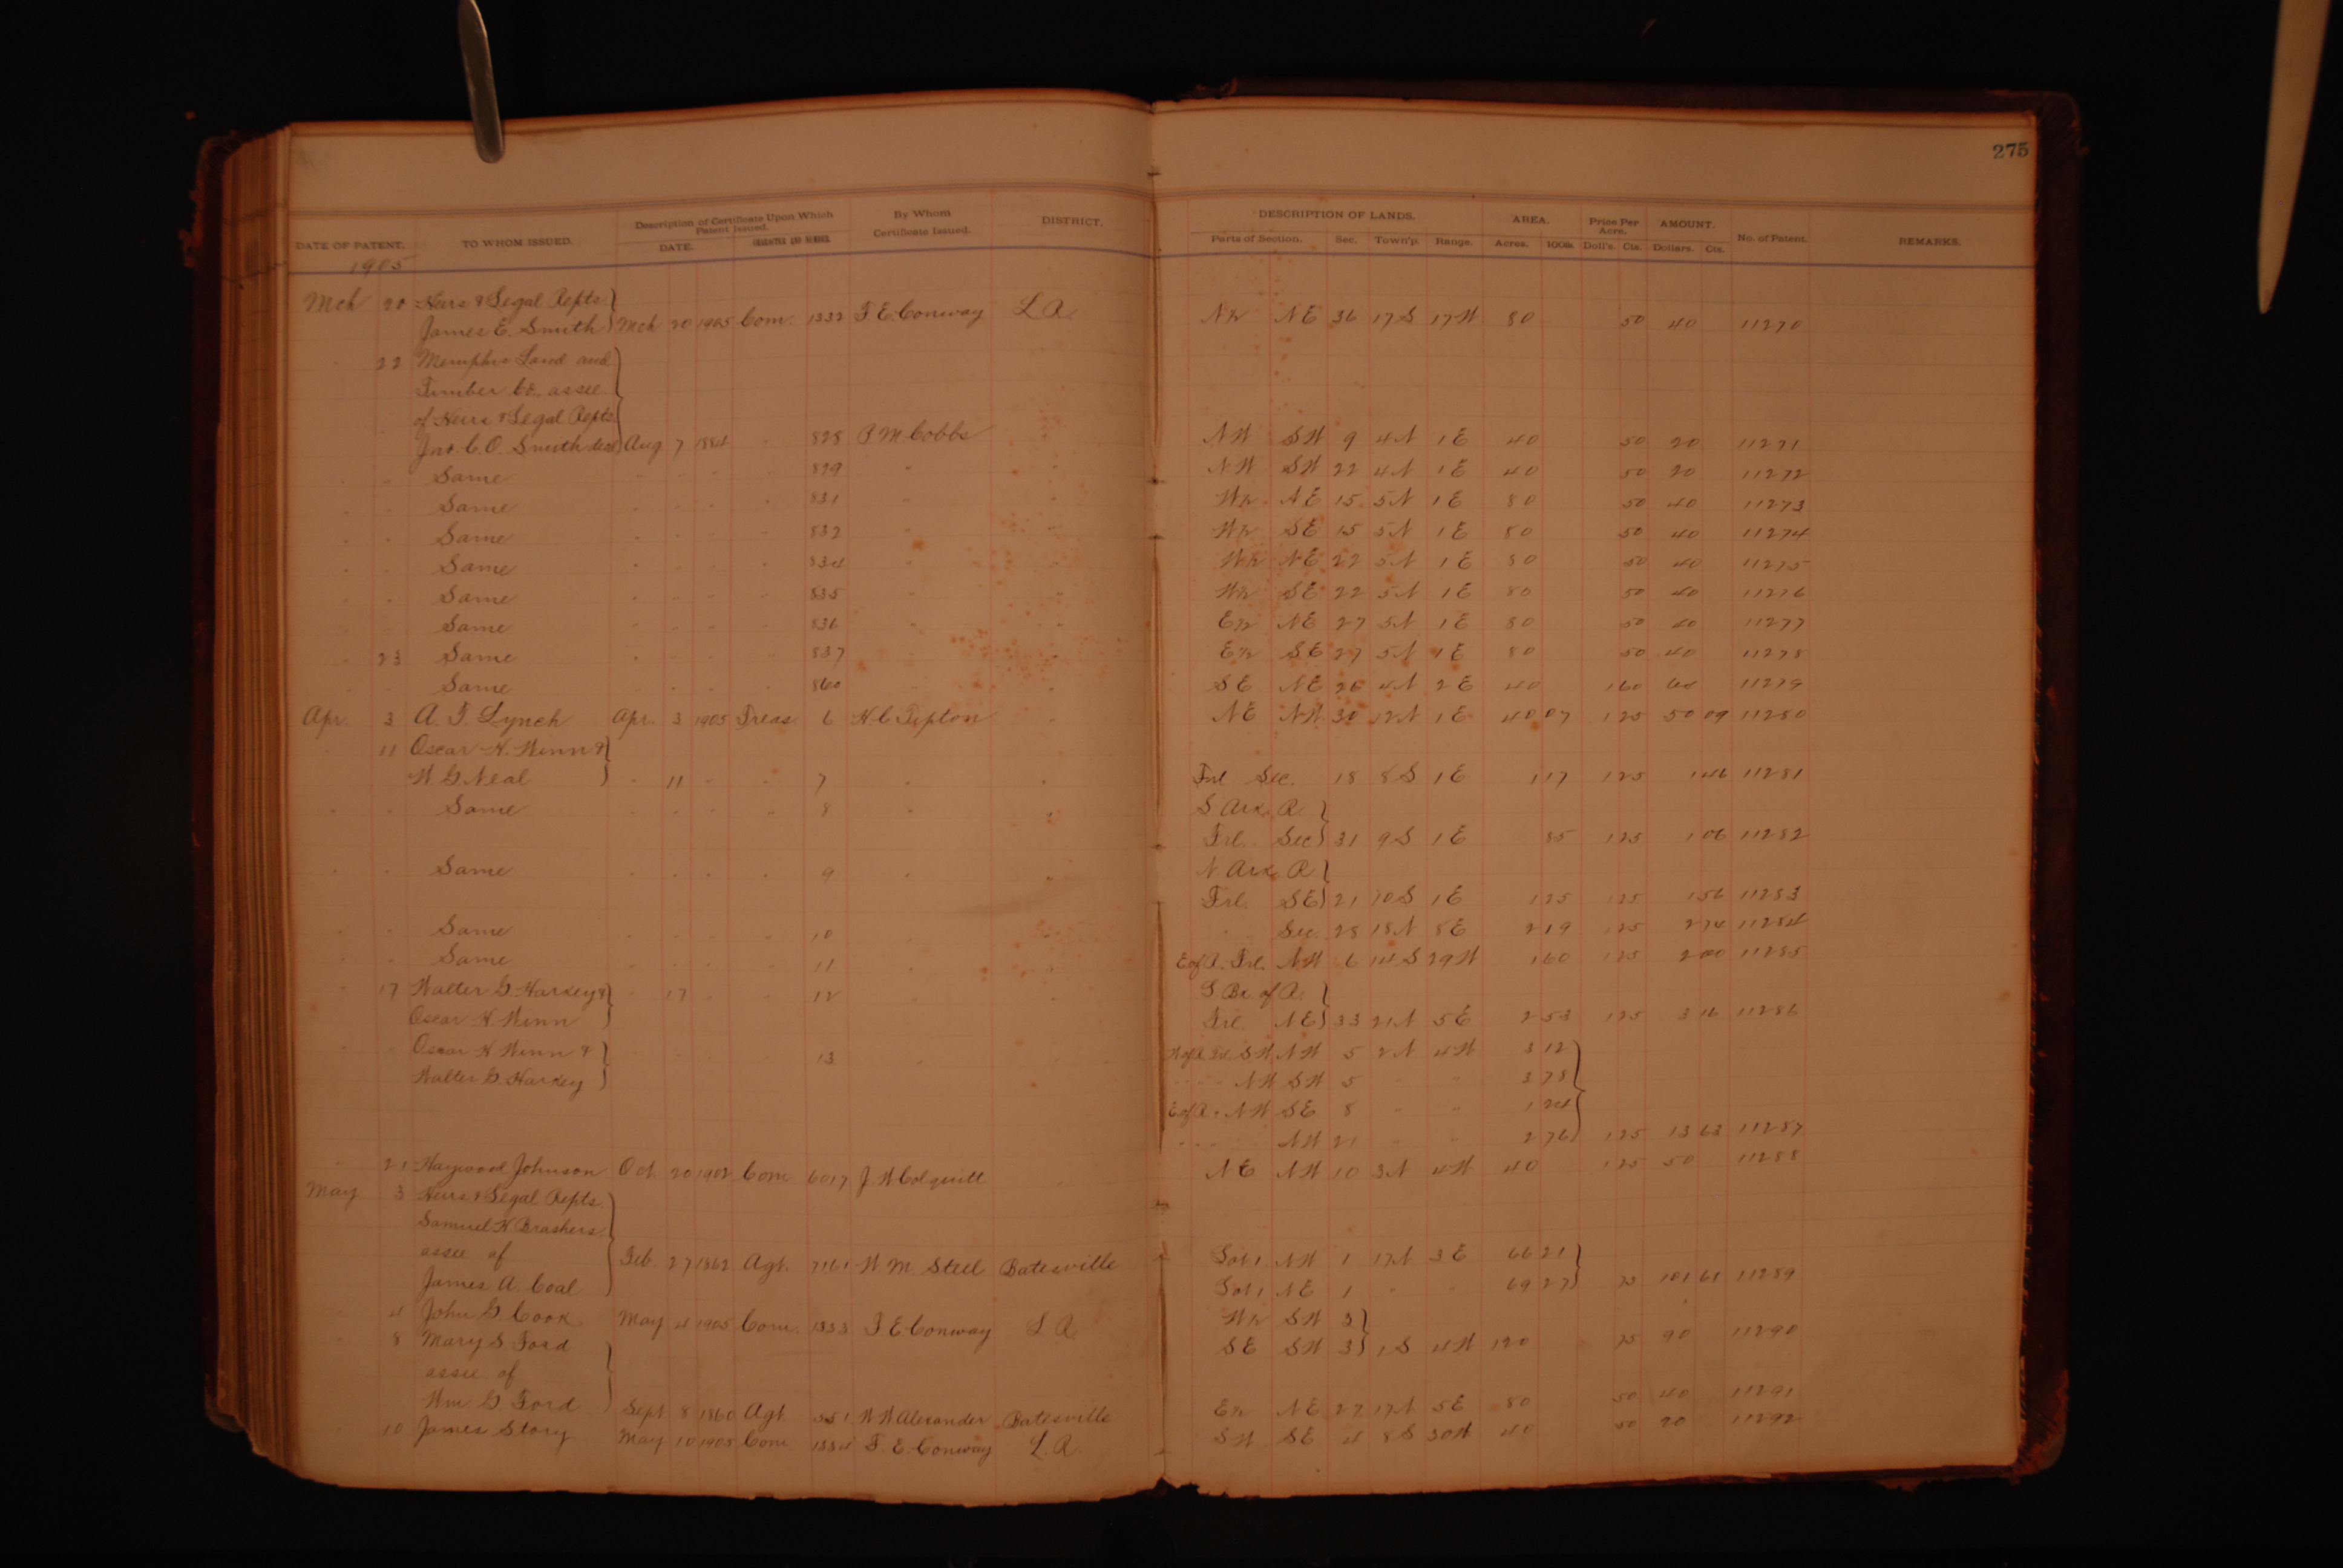 275
DATE OF PATENT. TO WHOM ISSUED. Description of Certificate Upon Which Patent Issued. DATE. CHARACTER AND NUMBER. By Whom Certificate Issued. DISTRICT. DESCRIPTION OF LANDS. Parts of Section. Sec. Town'p. Range. AREA. Acres. 100ths Price Per Acre. Doll's. Cts. AMOUNT. Dollars. Cts. No. of Patent. REMARKS.
1905
Mch 20 Heirs & Legal Repts.
James E. Smith Mch 20 1905 Com. 1332 F. E. Conway L R N½ NE 36 17S 17W 80 50 40 11270
" 22 Memphis Land and
Timber Co., assee.
of Heirs & Legal Repts.
Jno. C. O. Smith decd Aug 7 1884 " 828 P. M. Cobbs " NW SW 9 4N 1E 40 50 20 11271
" " Same " " " " 829 " " NW SW 22 4N 1E 40 50 20 11272
" " Same " " " " 831 " " W½ NE 15 5N 1E 80 50 40 11273
" " Same " " " " 832 " " W½ SE 15 5N 1E 80 50 40 11274
" " Same " " " " 834 " " W½ NE 22 5N 1E 80 50 40 11275
" " Same " " " " 835 " " W½ SE 22 5N 1E 80 50 40 11276
" " Same " " " " 836 " " E½ NE 27 5N 1E 80 50 40 11277
" 23 Same " " " " 837 " " E½ SE 27 5N 1E 80 50 40 11278
" " Same " " " " 860 " " SE NE 26 4N 2E 40 1 60 64 11279
Apr. 3 A. F. Lynch Apr. 3 1905 Treas 6 H. C. Tipton " NE NW 30 12N 1E 40 07 1 25 50 09 11280
" 11 Oscar H. Winn &
W. G. Neal " 11 " " 7 " " Frl Sec. 18 8S 1E 1 17 1 25 1 46 11281
" " Same " " " " 8 " " S Ark R.
Frl. Sec 31 9S 1E 85 1 25 1 06 11282
" " Same " " " " 9 " " N. Ark R
Frl. SE 21 10S 1E 1 25 1 25 1 56 11283
" " Same " " " " 10 " " " Sec. 28 18N 8E 2 19 1 25 2 74 11284
" " Same " " " " 11 " " E of R. Frl. NW 6 14S 29W 1 60 1 25 2 00 11285
" 17 Walter G. Harkey & " 17 " " 12 " " S Bk. of R.
Oscar H. Winn Frl. NE 33 21N 5E 2 53 1 25 3 16 11286
" " Oscar H Winn & " " " " 13 " " W of R. Frl. SW NW 5 2N 4W 3 12
Walter G. Harkey " " " NW SW 5 " " 3 78
E of R. " NW SE 8 " " 1 24
" " " NW 21 " " 2 76 1 25 13 63 11287
" 21 Haywood Johnson Oct. 20 1902 Com 6017 J. W Colquitt " NE NW 10 3N 4W 40 1 25 50 11288
May 3 Heirs & Legal Repts.
Samuel H Brashers
assee of
James A. Coal Feb. 27 1862 Agt. 7161 W. M. Steel Batesville Lot 1 NW 1 17N 3E 66 21
Lot 1 NE 1 " " 69 27 75 101 61 11289
" 4 John G. Cook May 4 1905 Com. 1333 F E Conway L. R. W½ SW 3
SE SW 3 1S 4W 120 75 90 11290
" 8 Mary S. Ford
assee of
Wm. G. Ford Sept 8 1860 Agt. 551 W W Alexander Batesville E½ NE 27 17N 5E 80 50 40 11291
" 10 James Story May 10 1905 Com 1334 F. E. Conway L. R. SW SE 4 8S 30W 40 50 20 11292